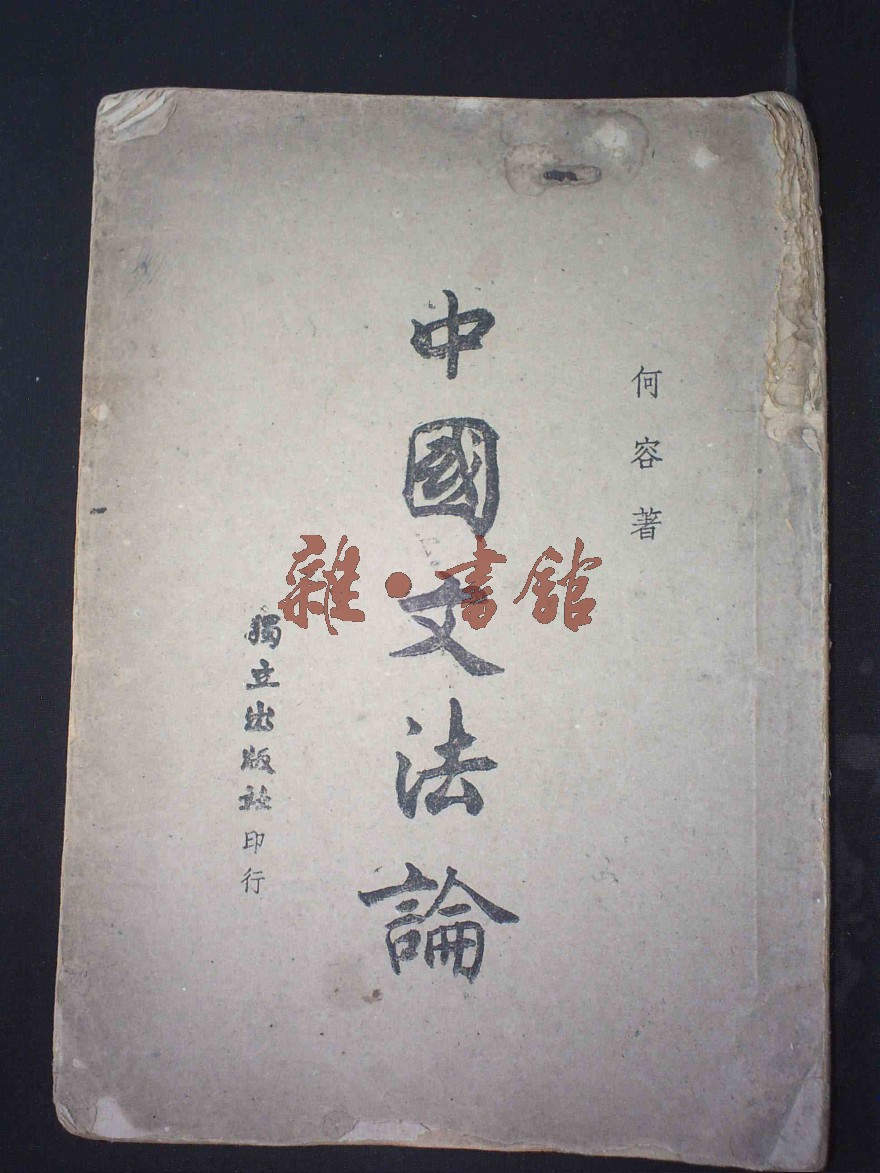 何容著
中國文法論
獨立出版社印行
雜·書館